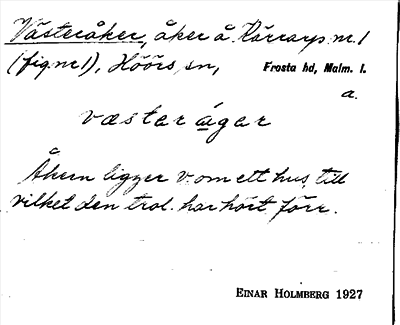 Västeråker, åker å Rörarp nr. 1
(fig. nr 1), Höörs sn, Frosta hd, Malm. l.
a.
væster ágar
Åkern ligger v. om ett hus, till
vilket den trol. har hört förr.
EINAR HOLMBERG 1927